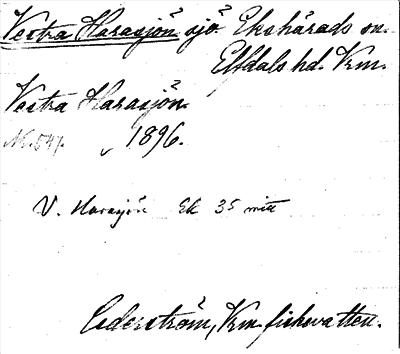 Vestra Harasjön sjö. Ekshärads sn.
Elfdals hd. Vrm.
Vestra Harasjön.
N. 547. 1896.
V. Harasjön Ek 35 mitt
Cederström, Vrm. fiskevatten.